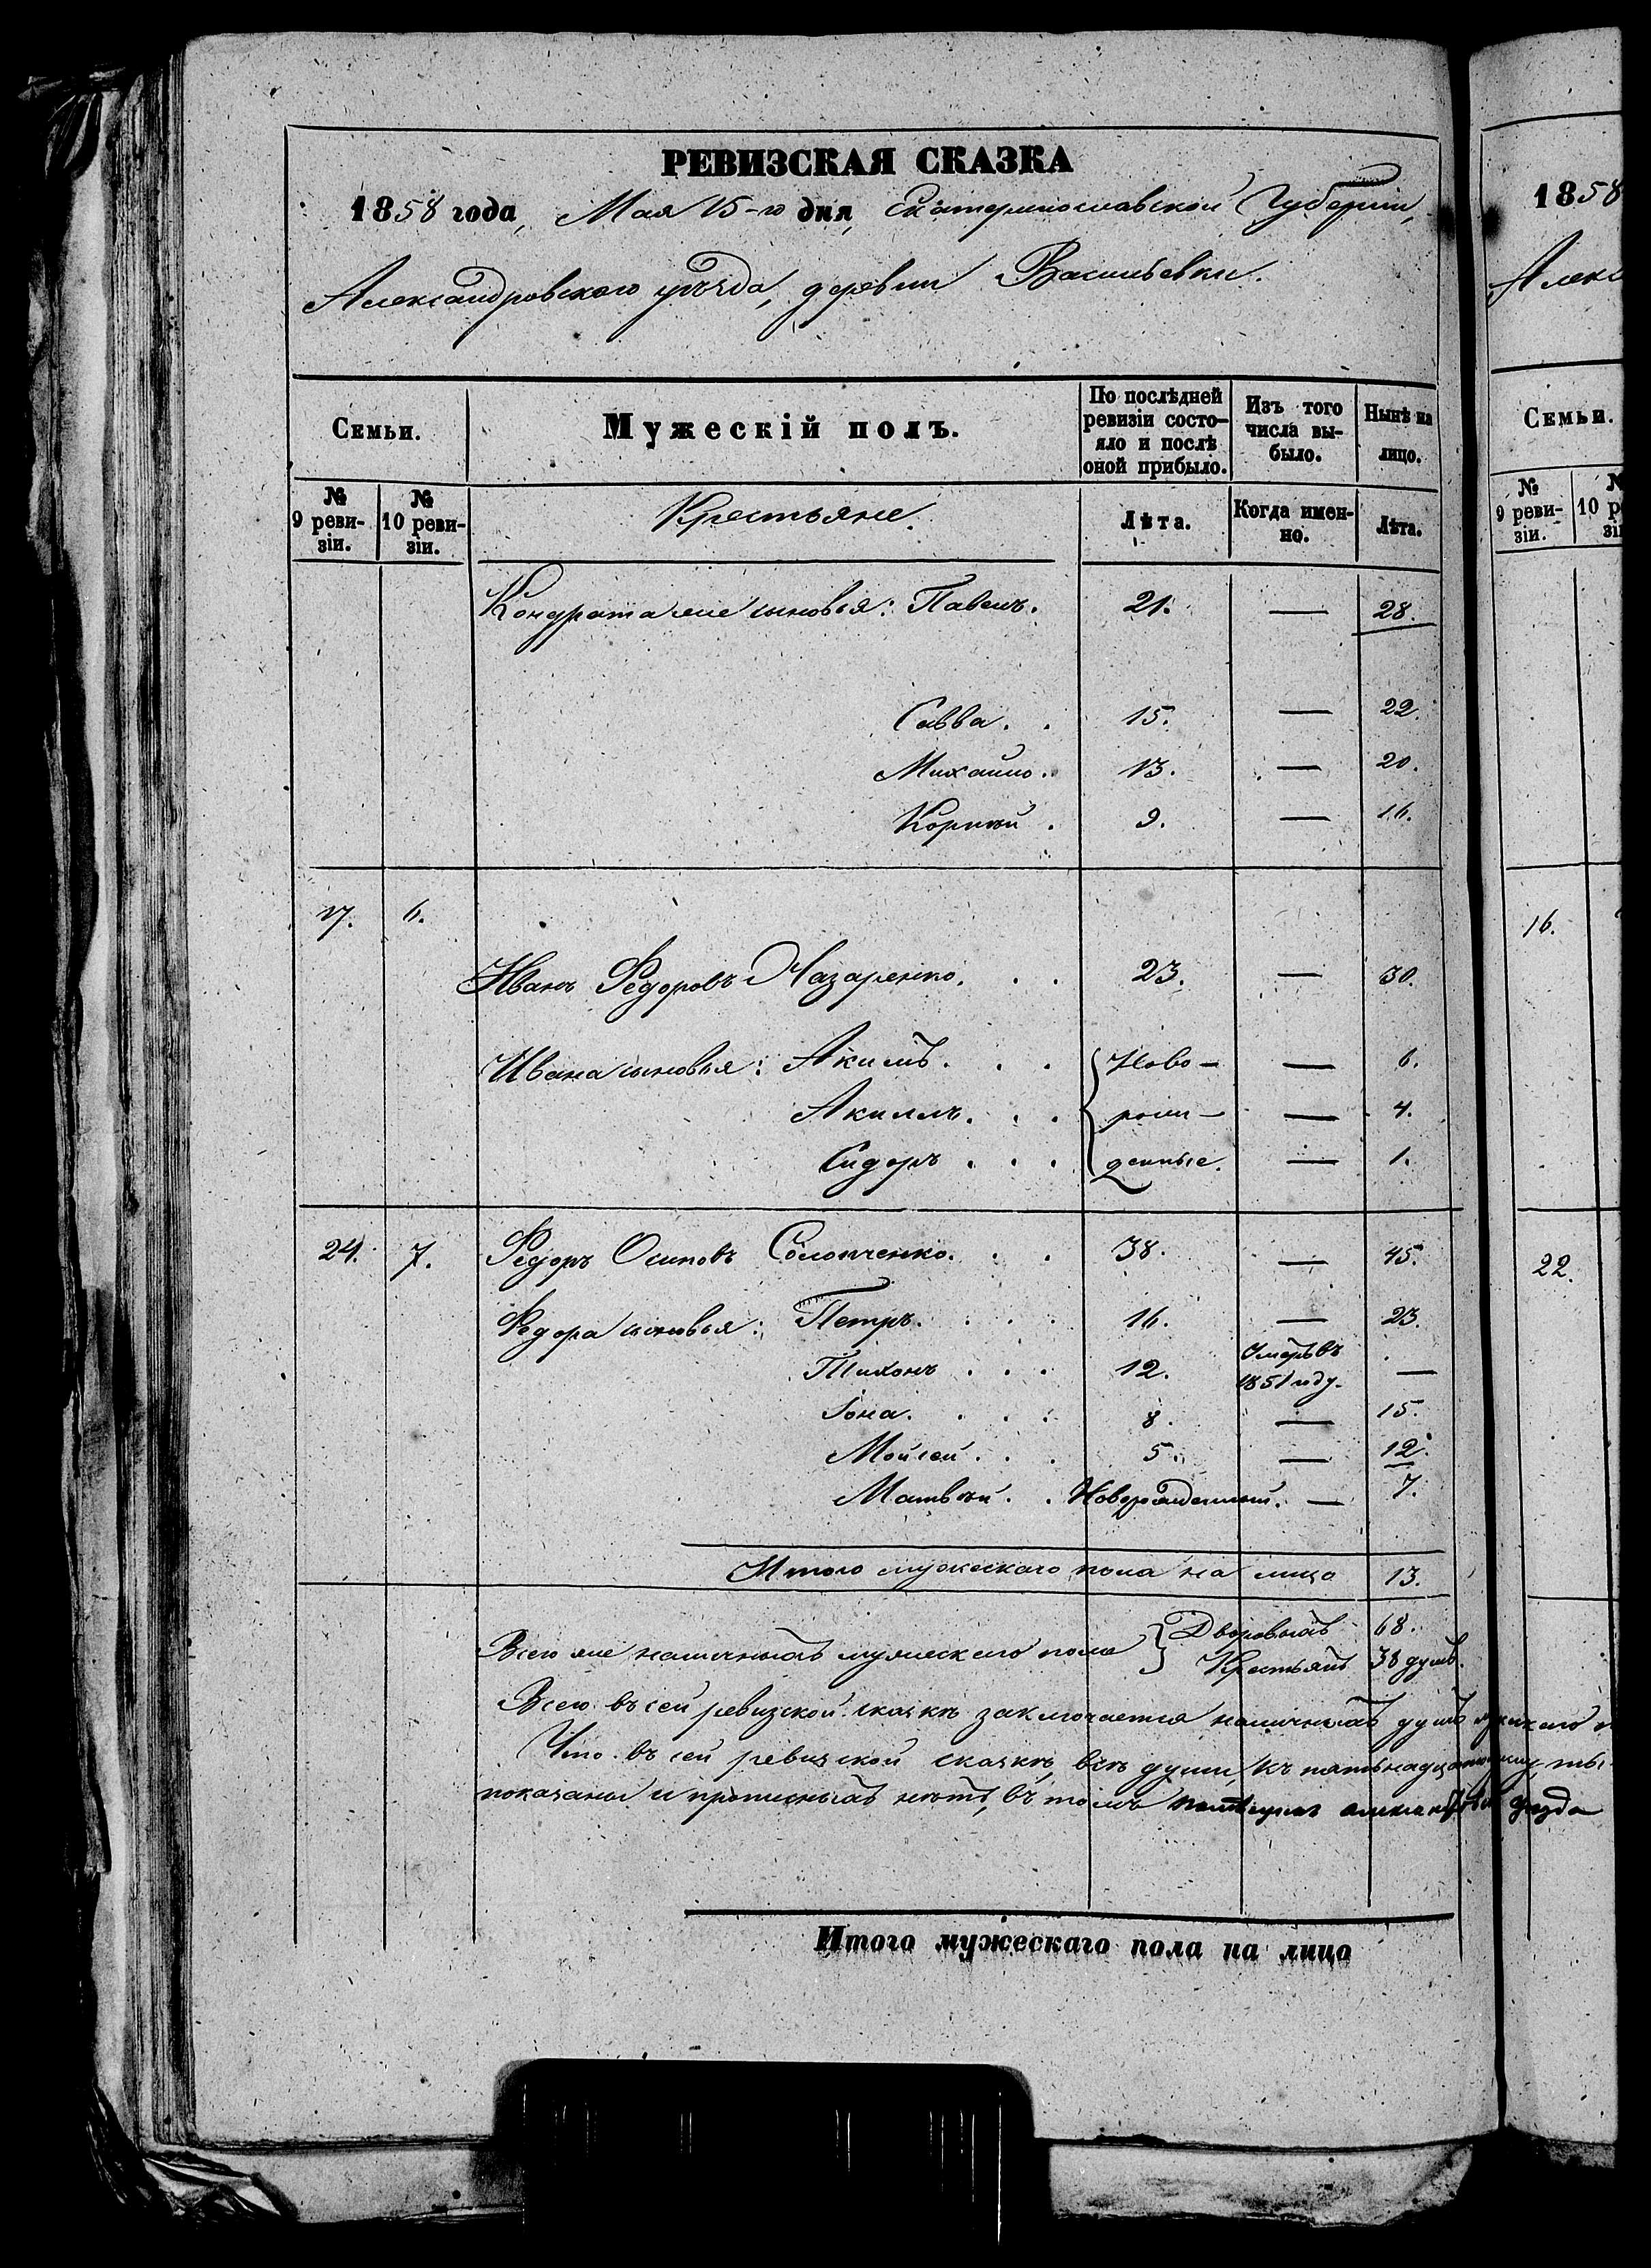 РЕВИЗСКАЯ СКАЗКА
1858 года, Мая 15-го дня, Екатеринославской Губерніи,
Александровскаго уѣзда, деревни Васильевки.
Семьи.
Мужескій полъ.
По послѣдней ревизіи состо-
яло и послѣ
оной прибыло.
Изъ того
числа вы-
было.
Нынѣ на
лицо.
№
9 реви-
зіи.
№
10 реви-
зіи.
Крестьяне.
Лѣта.
Когда имен-
но.
Лѣта.
Кондрата же сыновья: Павелъ. 21. — 28.
Савва. . 15. — 22.
Михайло. 13. — 20.
Корнѣй . 9. — 16.
17. 6.
Иванъ Федоровъ Назаренко. . . 23. — 30.
Ивана сыновья: Акимъ. . . Ново- — 6.
Акиллъ. . . рож- — 4.
Сидоръ . . . денные. — 1.
24. 7. Федоръ Осиповъ Солопченко. . . 38. — 45.
Федора сыновья: Петръ. . . . 16. — 23.
Тихонъ . . . 12. Умеръ въ 1851 году. —
Іона. . . . 8. — 15.
Мойсей. . . 5. — 12.
Матвѣй. . Новорожденный. — 7.
Итого мужескаго пола на лицо 13.
Всего же наличныхъ мужескаго пола } Дворовыхъ 68.
Крестьянъ 38 душъ.
Всего въ сей ревизской сказкѣ заключается наличныхъ душъ мужскаго
Что въ сей ревизской сказкѣ, всѣ души, къ пятьнадцатому
показаны и прописныхъ нѣтъ, въ томъ
Итого мужескаго пола на лицо
1858
Алекс
Семьи.
№
9 реви-
зіи.
10 р
зі
16.
22.